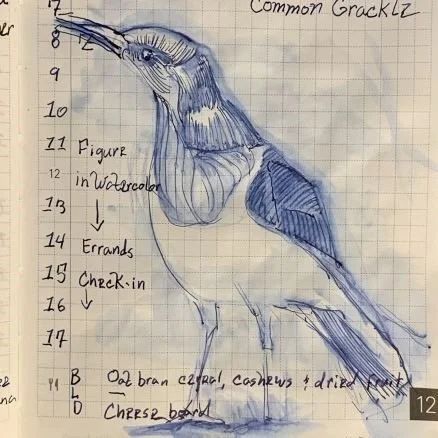 Common Grackle
7
8
9
10
11 Figure
12 in Watercolor
13
14 Errands
15 Check-in
16
17
B Oat bran cereal, cashews & dried fruit
L
D Cheese board
12